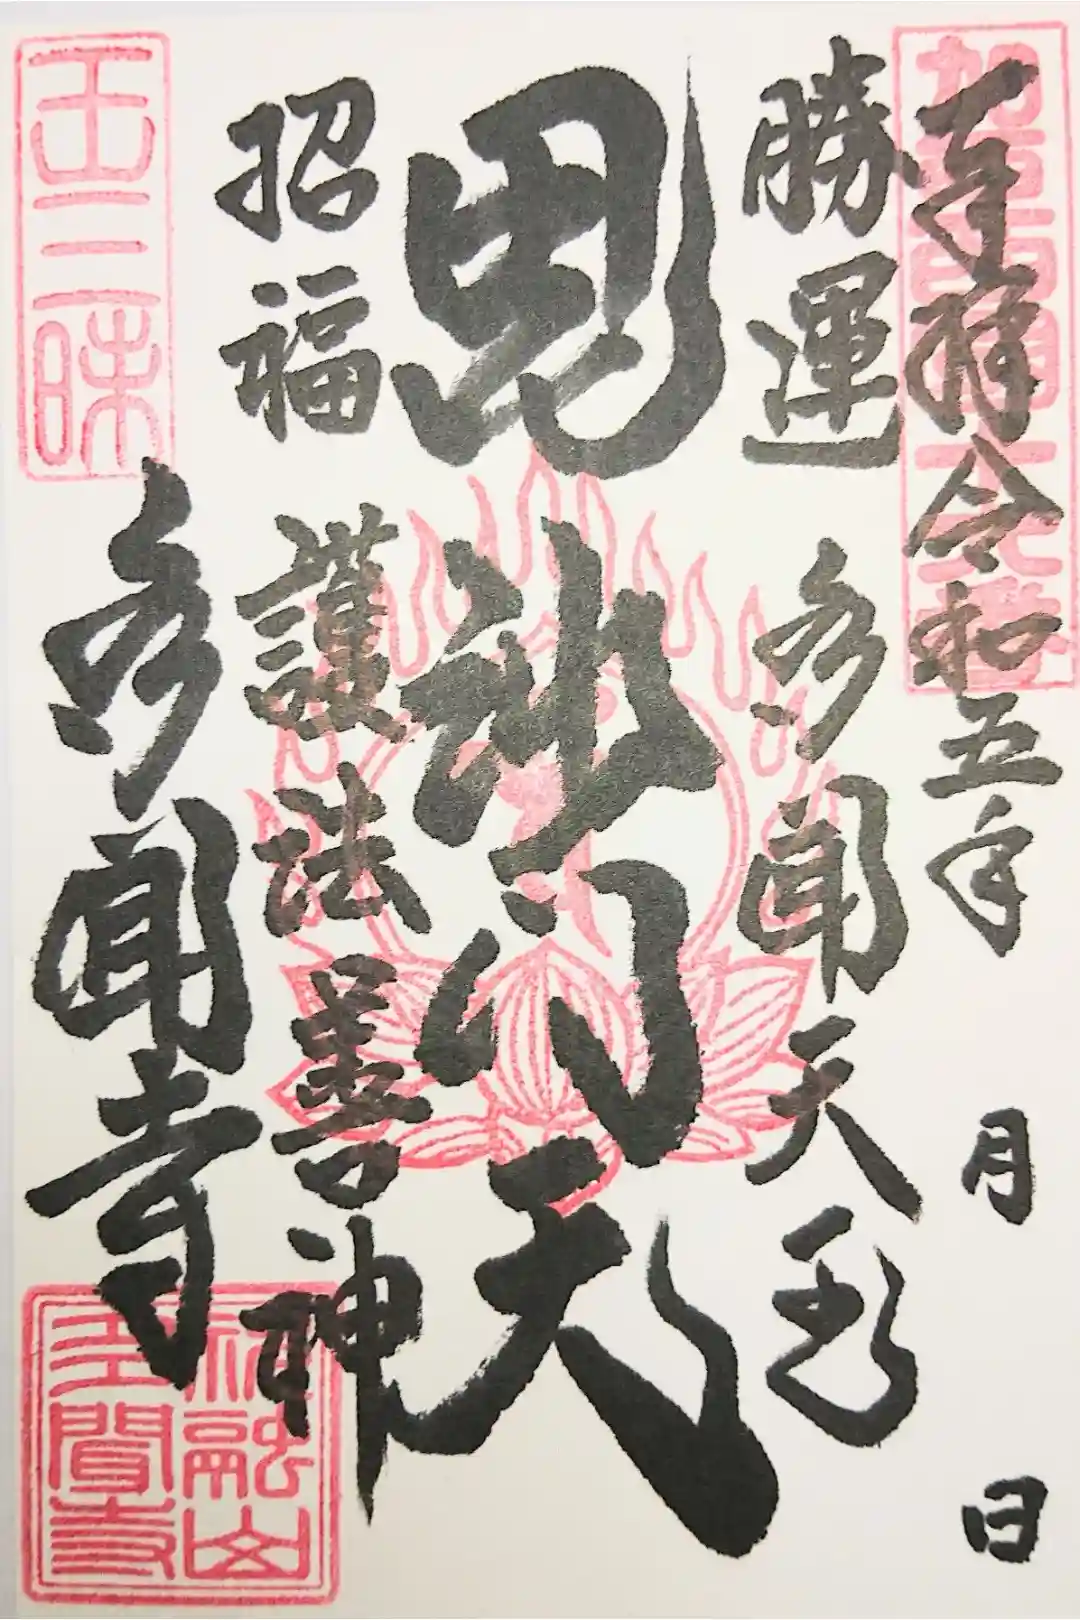 奉拝 令和五年 月 日
勝運 多聞天
毘沙門天
招福 護法善神
多聞寺